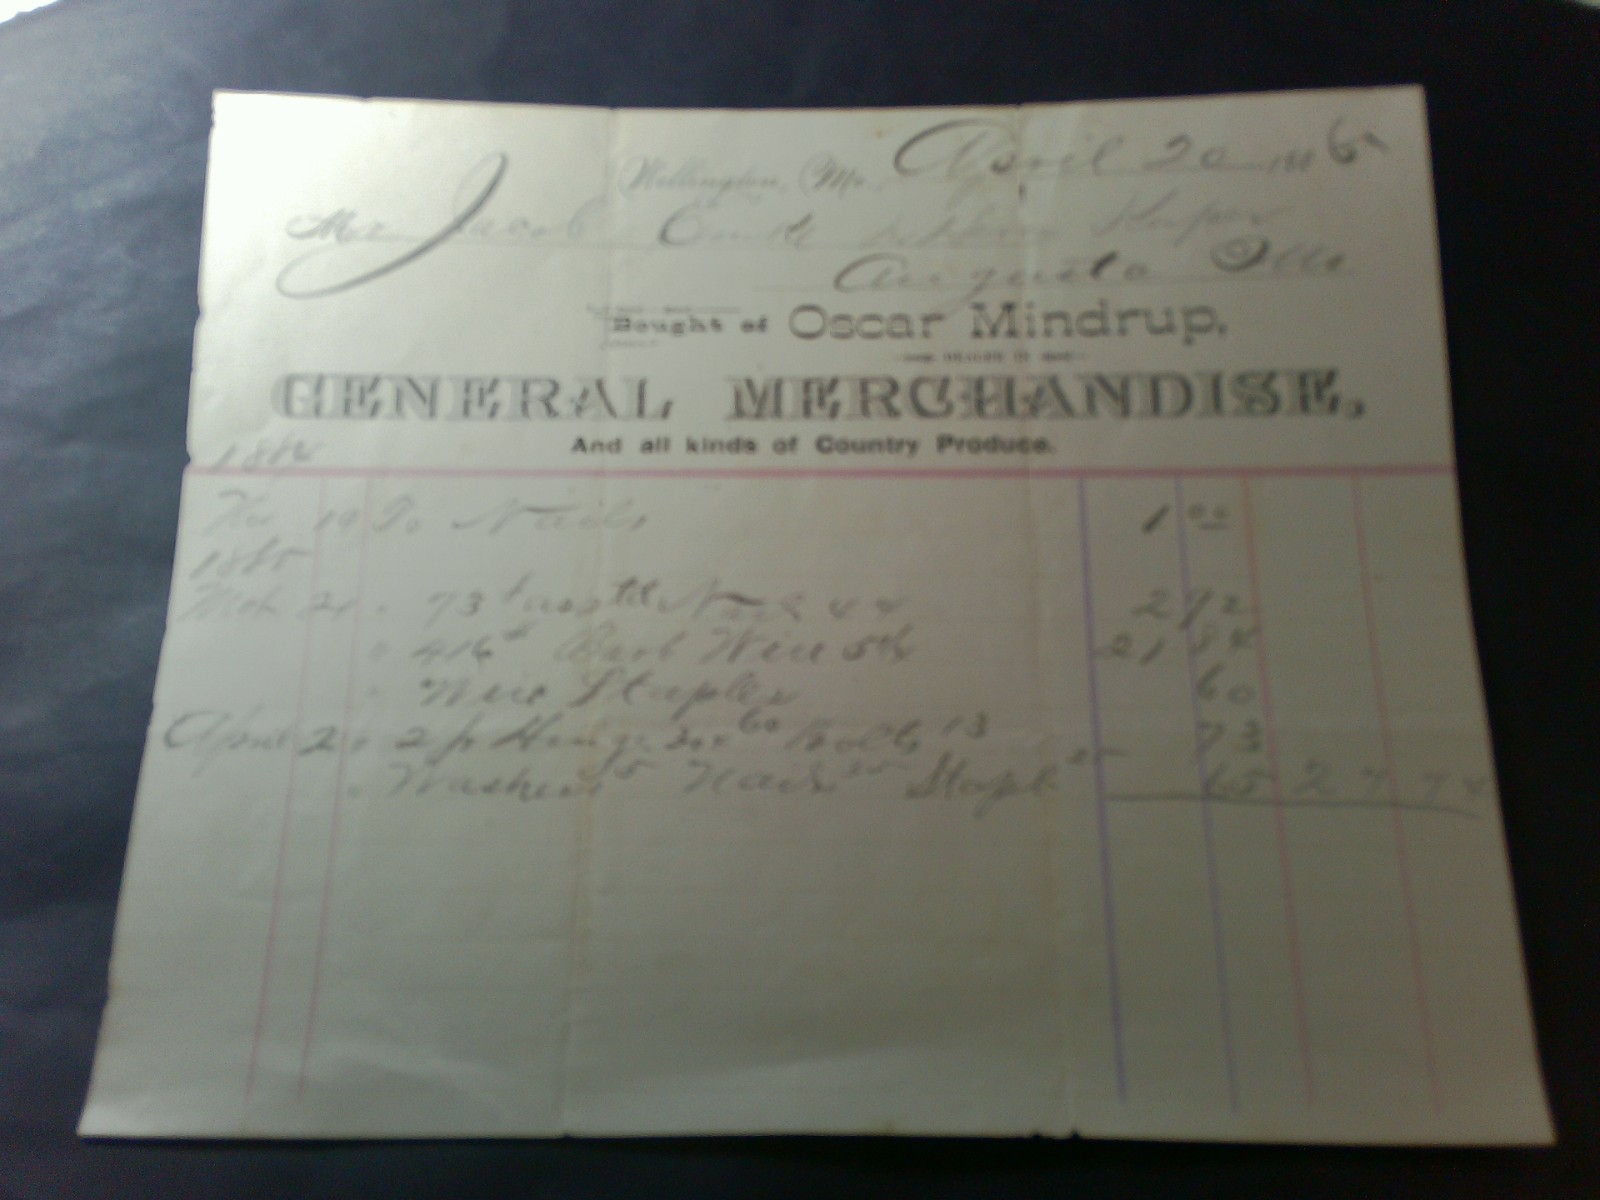 Wellington, Mo. April 20 188
Mr. Jacob
Augusta Ills
Bought of Oscar Mindrup,
DEALER IN
GENERAL MERCHANDISE,
And all kinds of Country Produce.
19 To Nails 1 00
1885
Mch 21 " 73 Nails 4 2 92
" 416 # Barb Wire 5¼ 21 84
" Wire Staples 60
April 2 " 2 pr Hinges 60 Bolts 13 73
" Washers 5 Nails 35 Staple 25 65 27 74